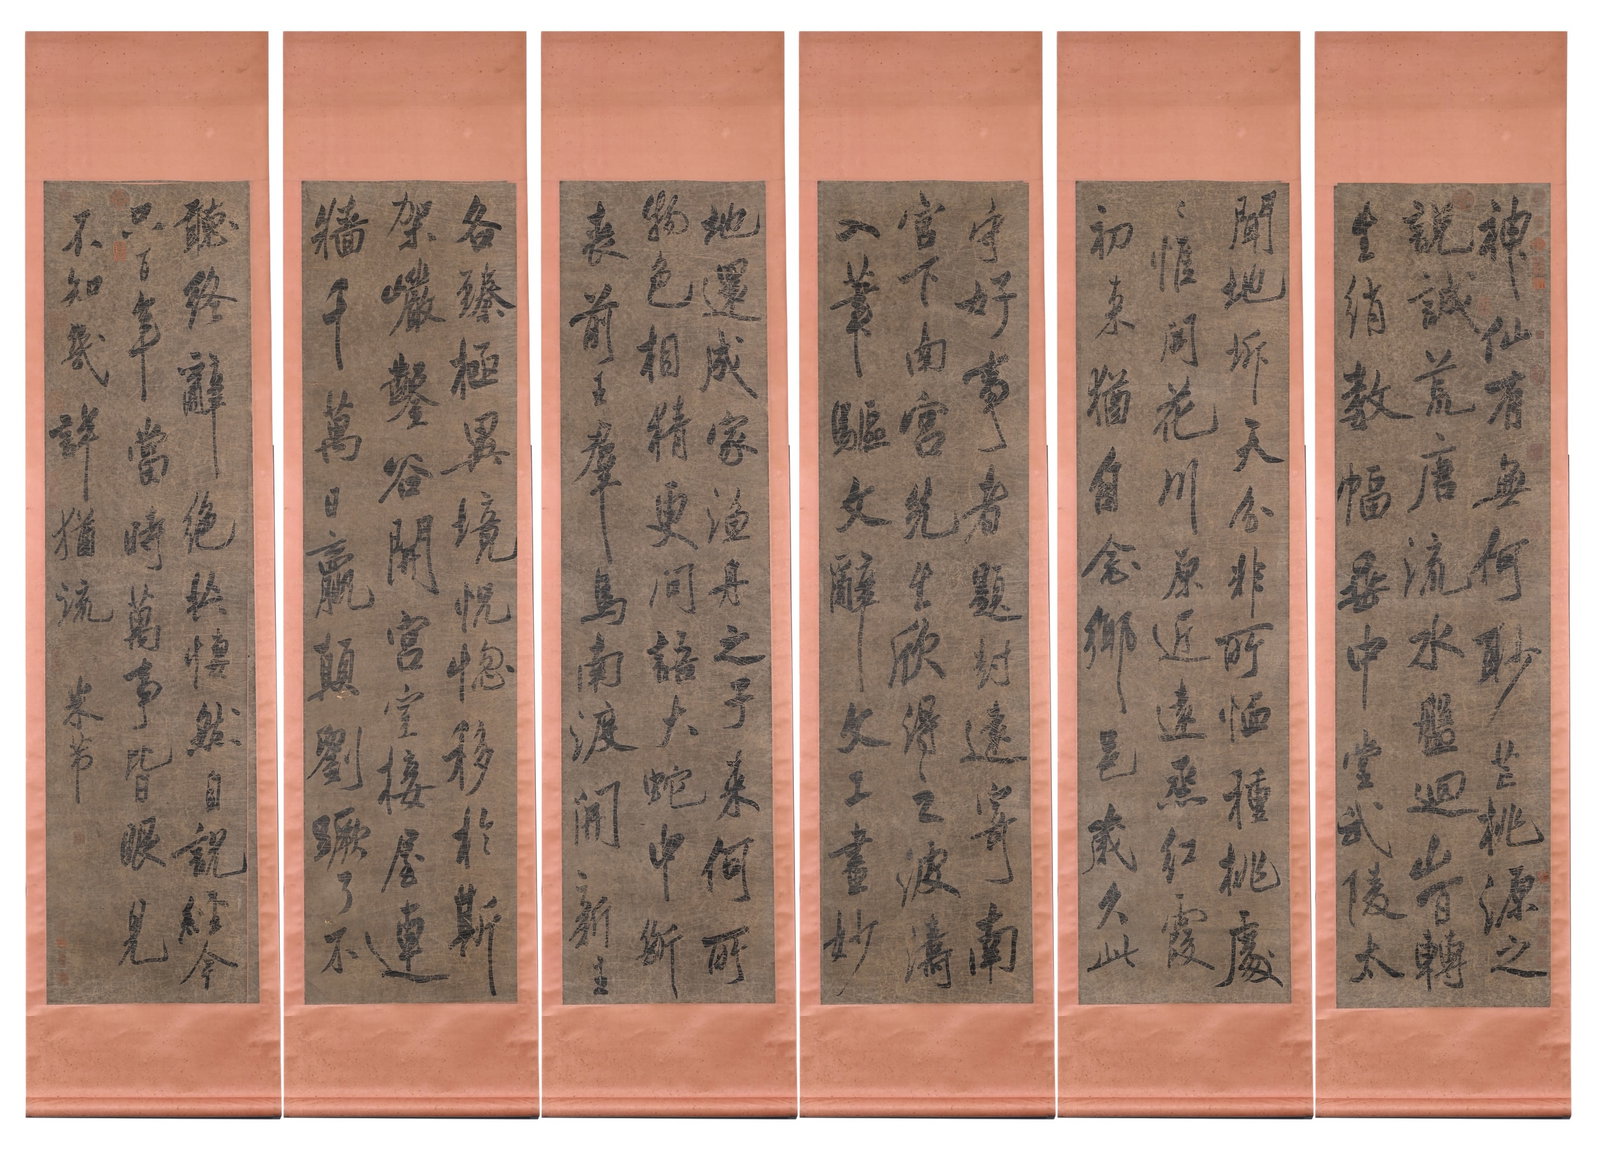 神仙有無何眇芒桃源之
說誠荒唐流水盤迴山百轉
生綃數幅垂中堂武陵太
聞地坼天分非所恤種桃處
〻惟開花川原近遠烝紅霞
初來猶自念鄉邑歲久此
守好事者題封遠寄南
宮下南宮先生欣得之波濤
入筆驅文辭文工畫妙
地還成家漁舟之子來何所
物色相猜更問語大蛇中斷
喪前王羣馬南渡開新主
各臻極異境恍惚移於斯
架巖鑿谷開宮室接屋連
牆千萬日嬴顛劉蹶了不
聽終辭絕共悽然自說經今
六百年當時萬事皆眼見
不知幾許猶流
米芾